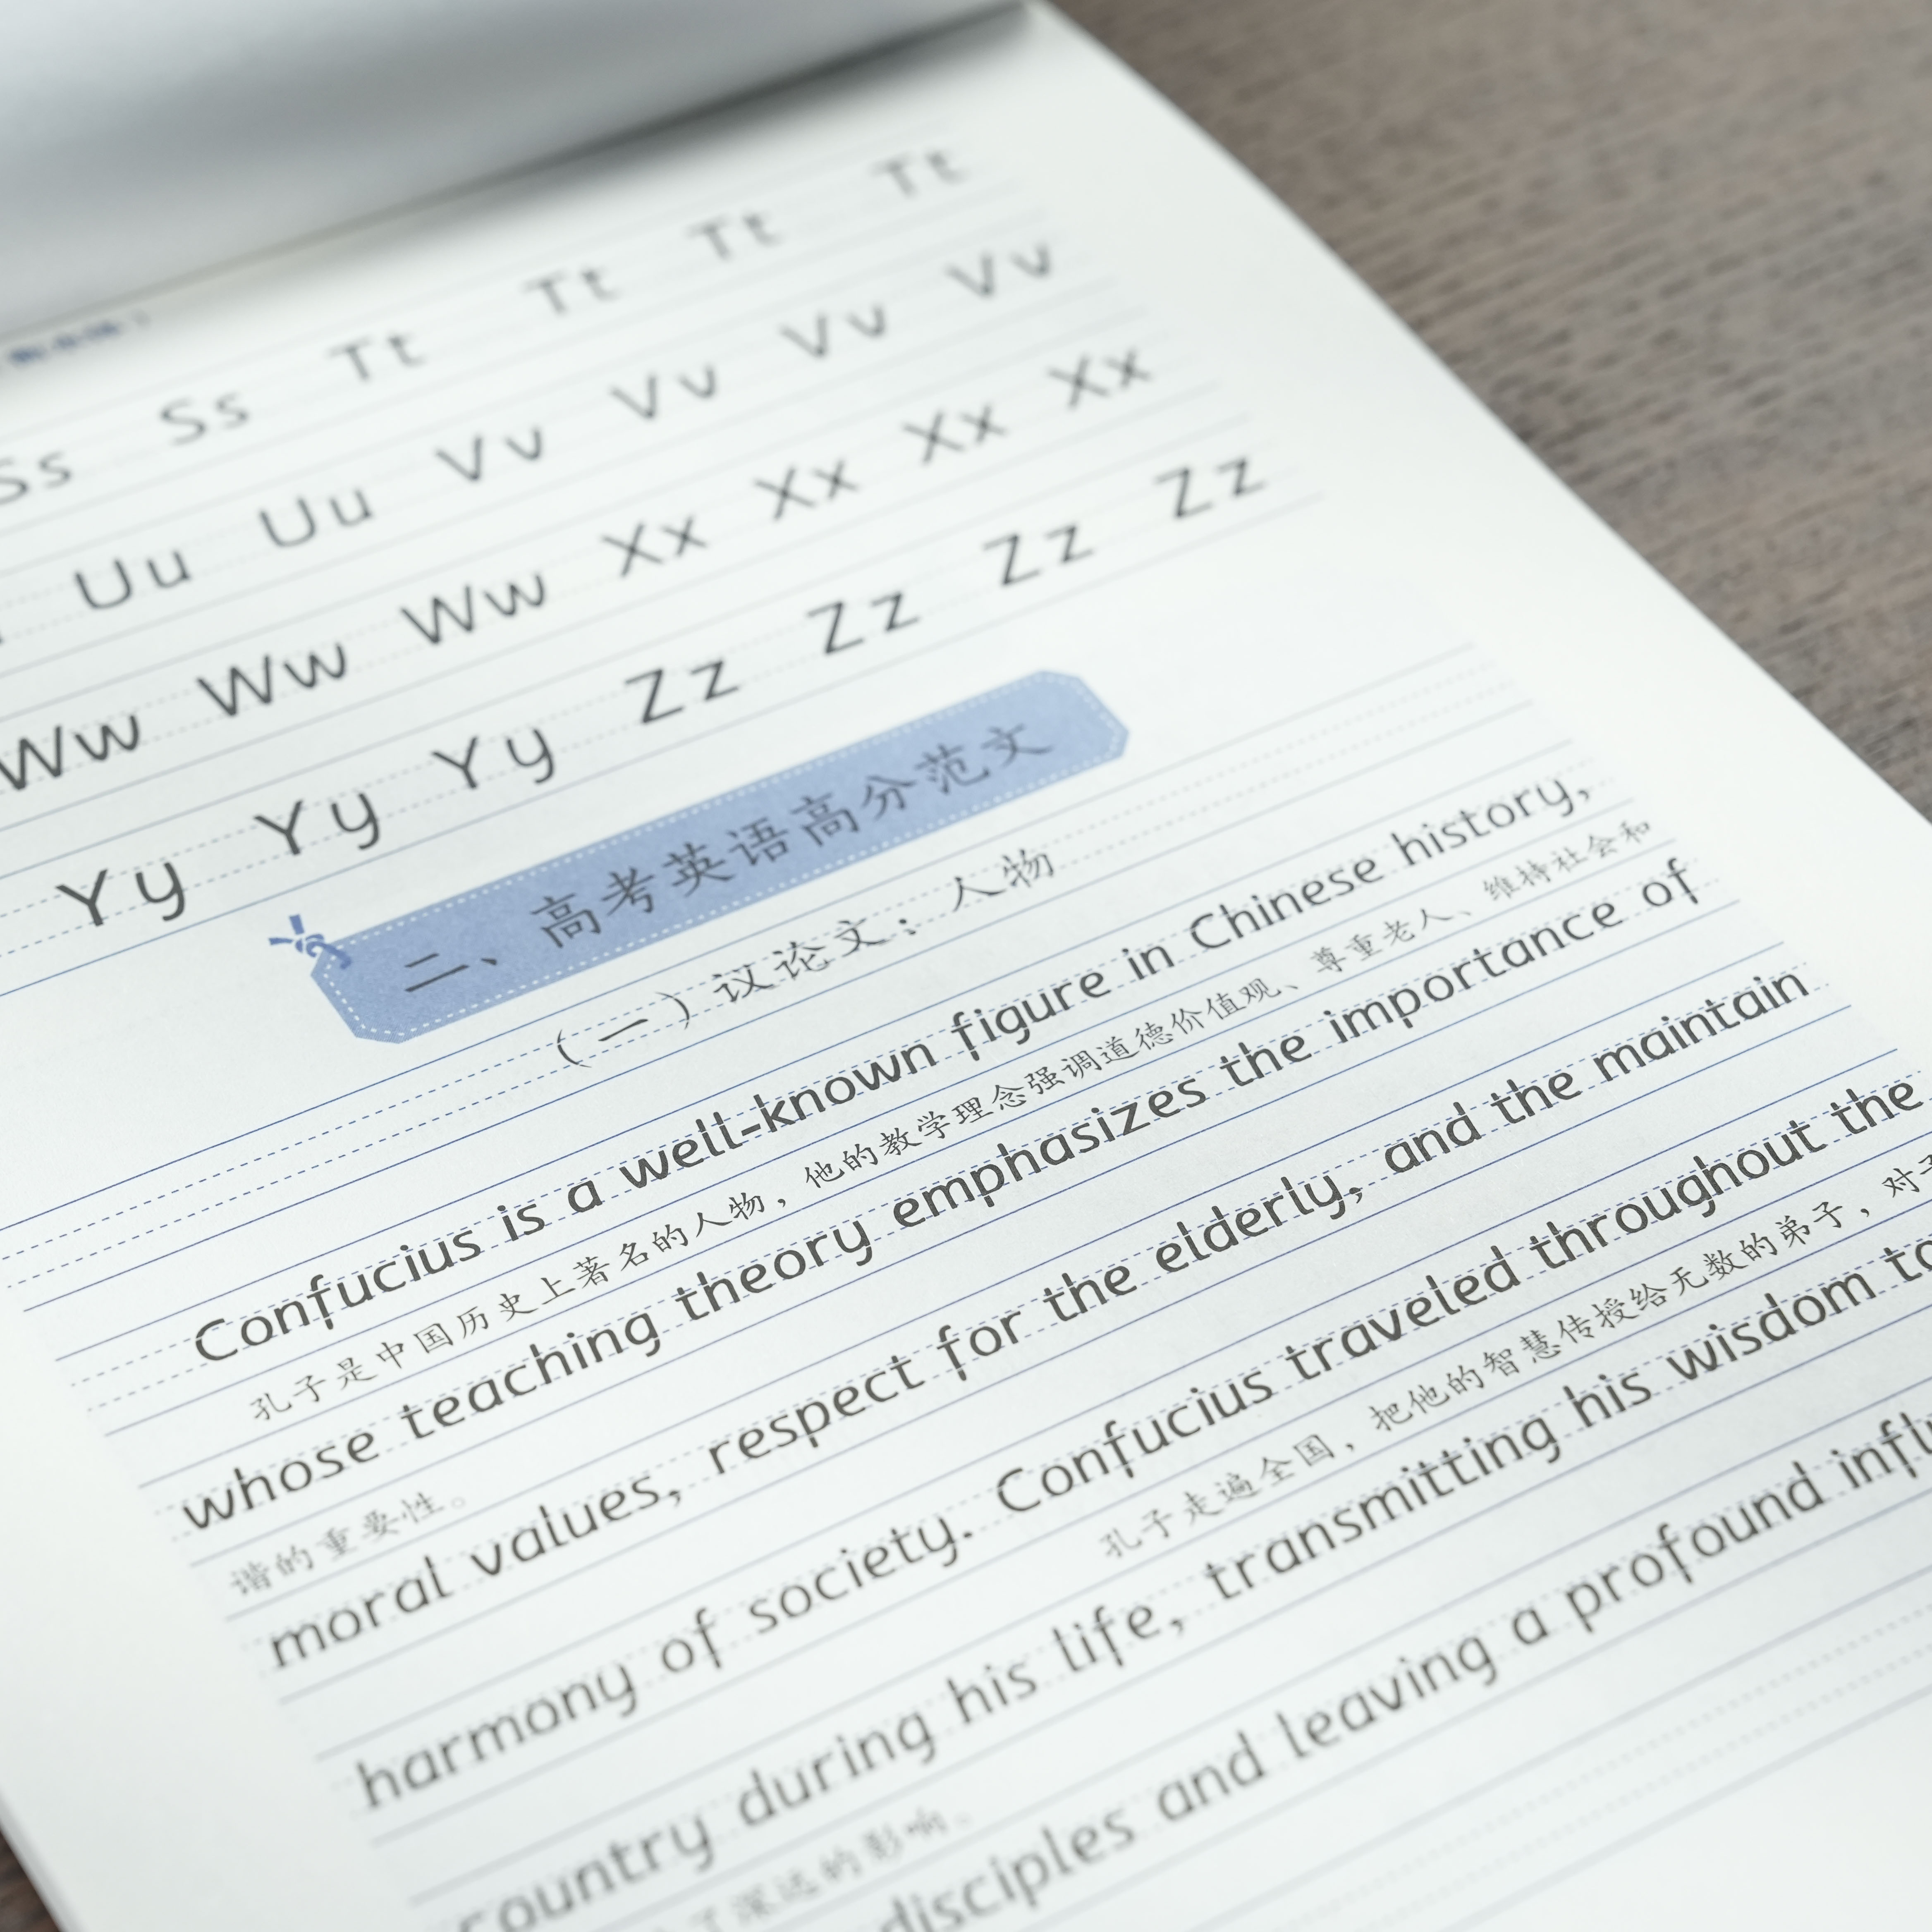 Ss Ss Tt Tt Tt Tt
Uu Uu Vv Vv Vv Vv
Ww Ww Ww Xx Xx Xx Xx
Yy Yy Yy Zz Zz Zz Zz
二、高考英语高分范文
（一）议论文；人物
Confucius is a well-known figure in Chinese history,
孔子是中国历史上著名的人物，他的教学理念强调道德价值观、尊重老人、维持社会和
whose teaching theory emphasizes the importance of
谐的重要性。
moral values, respect for the elderly, and the maintain
harmony of society. Confucius traveled throughout the
孔子走遍全国，把他的智慧传授给无数的弟子，对
country during his life, transmitting his wisdom
了深远的影响。
disciples and leaving a profound